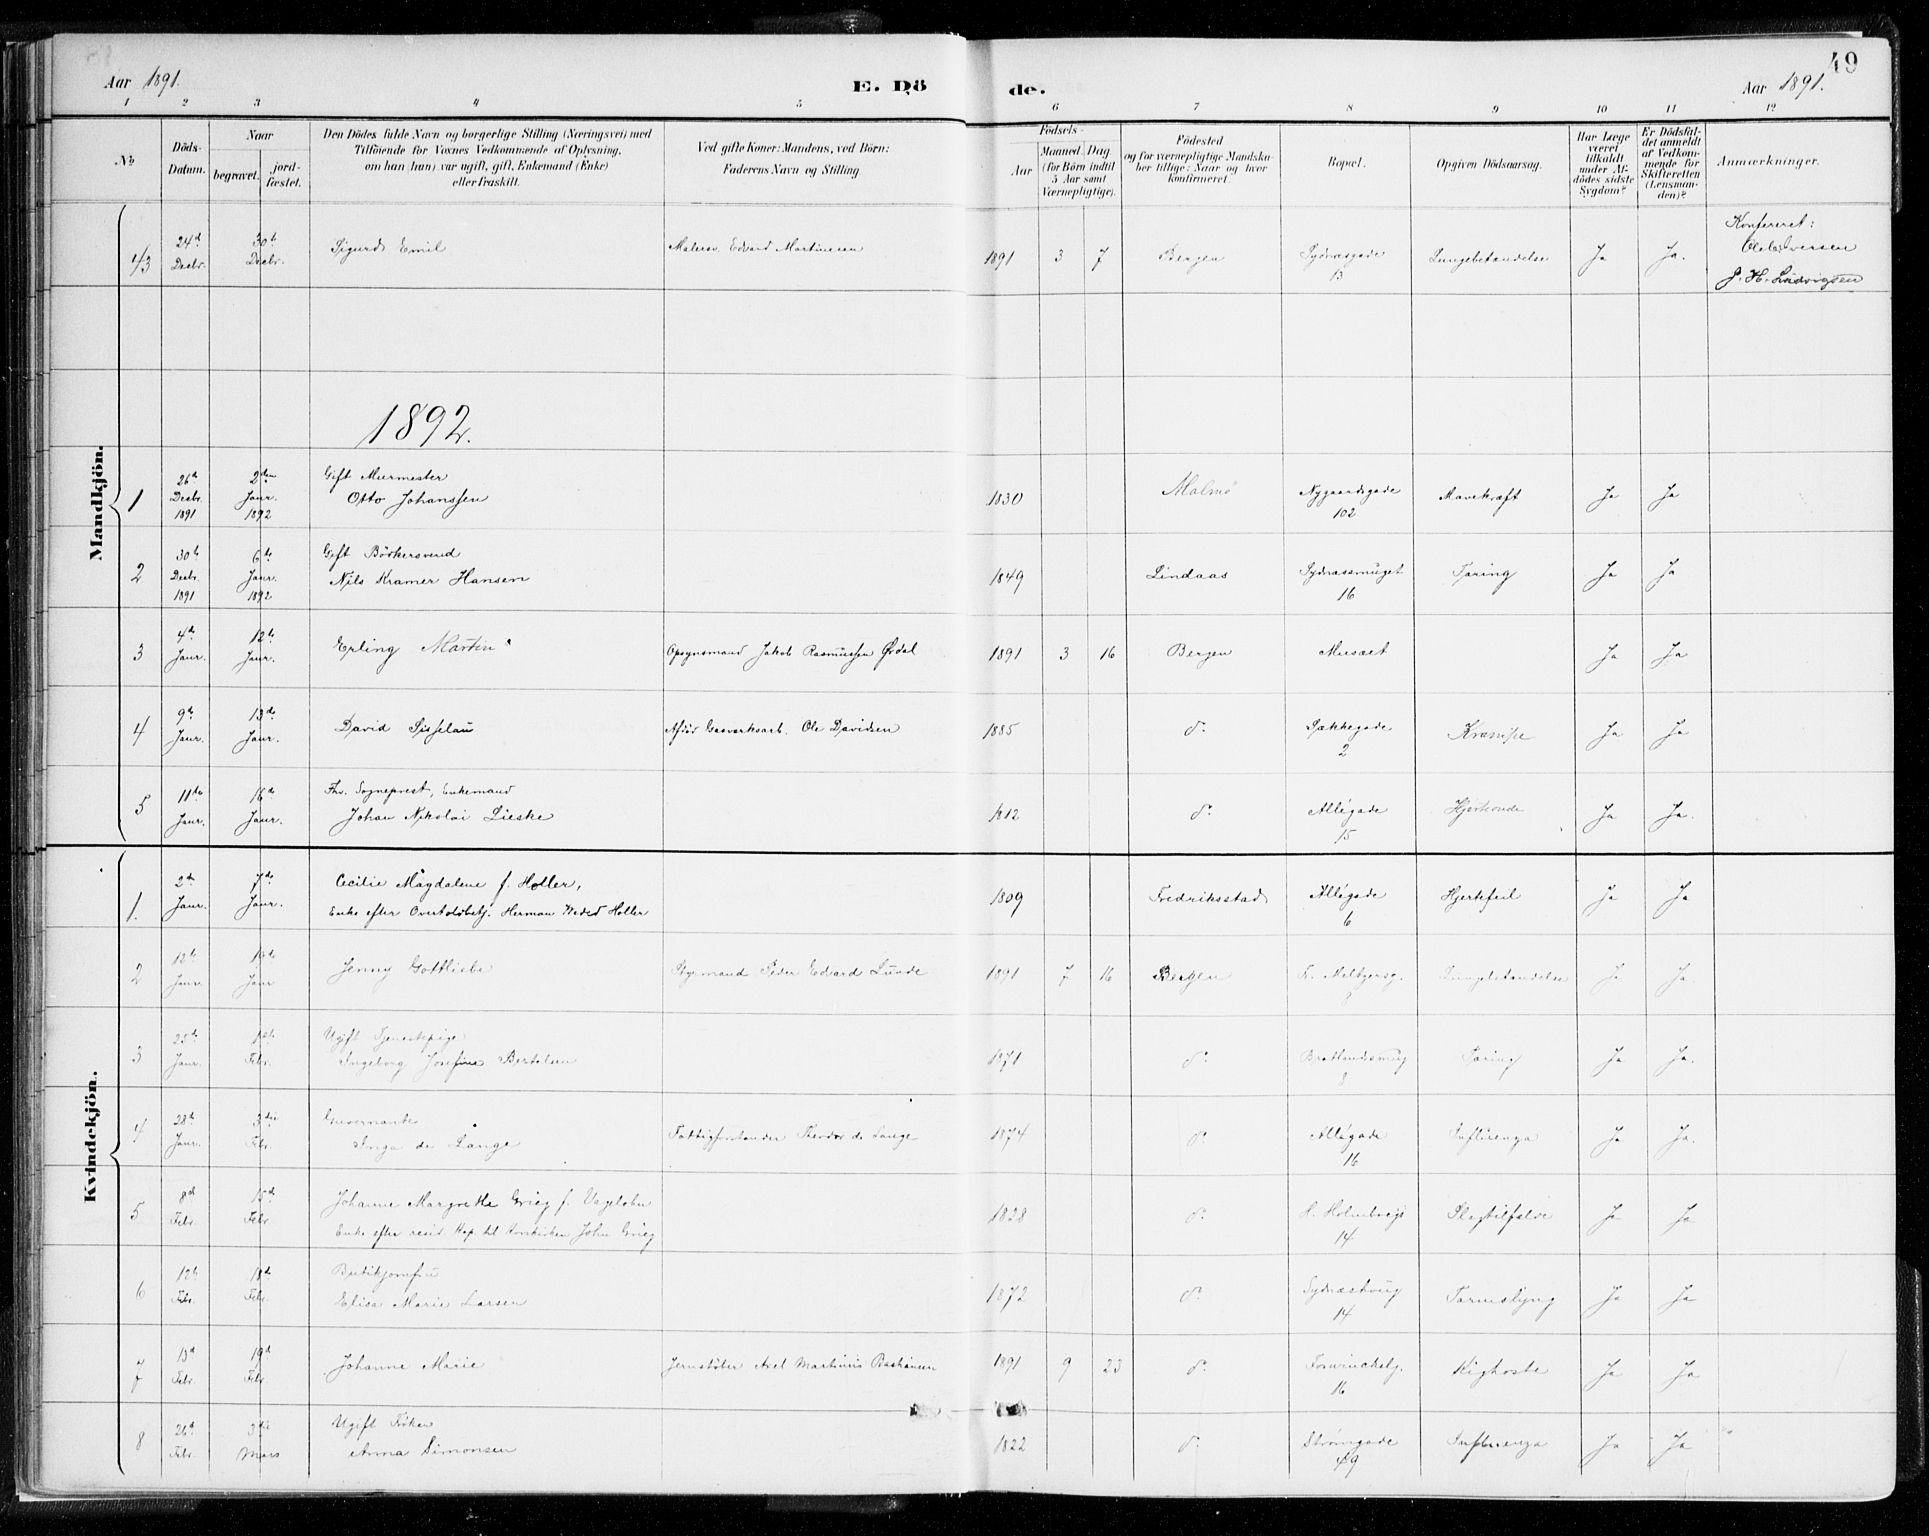 49
Aar 1891.
E. Dö de.
Aar 1891.
1 2 3 4 5 6 7 8 9 10 11 12
No
Döds-Datum.
Naar
begravet.
jord-fæstet.
Den Dödes fulde Navn og borgerlige Stilling (Næringsvei) med
Tilföiende for Voxnes Vedkommende af Oplysning,
om han (hun) var ugift, gift, Enkemand (Enke)
eller fraskilt.
Ved gifte Koner: Mandens, ved Börn:
Faderens Navn og Stilling
Födsels-
Aar
Maaned. Dag
(for Börn indtil
5 Aar samt
Værnepligtige).
Födested
og for værnepligtige Mandska-
ber tillige: Naar og hvor
konfirmeret.
Bopæl.
Opgiven Dödsaarsag.
Har Læge
været
tilkaldt
under Af-
dödes sidste
Sygdom?
Er Dödsfal-
det anmeldt
af Vedkom-
mende for
Skifteretten
(Lensman-
den)?
Anmærkninger.
Mandkjön.
43 24d Decbr. 30te Decbr. Sigurd Emil Malersv. Edvard Martinesen 1891 3 7 Bergen Sydnæsgade 13 Lungebetændelse Ja Ja.
Konfereret:
Ole Iversen
J. H. Ludvigsen
1892.
1 26d Decbr. 1891 2den Janr. 1892 Gift Murmester
Otto Johanssen 1830 Malmö Nygaardsgade 102 Mavekræft Ja Ja
2 30te Decbr. 1891 6te Janr. 1892 Gift Bödkersvend
Nils Kramer Hansen 1849 Lindaas Sydnæssmuget 16 Tæring Ja Ja
3 4de Janr. 12te Janr. Erling Martin Opsynsmand Jakob Rasmussen Ørdal 1891 3 16 Bergen Musæet Ja Ja
4 9de Janr. 13de Janr. David Afdöd Gasværksarb. Ole Davidsen 1885 do Sækkegade 2 Krampe Ja Ja
5 11te Janr. 16de Janr. Fhv. Sogneprest, Enkemand
Johan Nikolai Lieske 1812 do Allégade 15 Hjerteonde Ja Ja.
Kvindekjön.
1. 2den Janr. 7de Janr. Cecilie Magdalene f. Holler,
Enke efter Overtoldbetj. Herman Weded Holler 1809 Fredriksstad Allégade 6 Hjertefeil Ja Ja
2 12te Janr. Janr Jenny Gottliebe Styrmand Peder Edvard Lunde 1891 7 16 Bergen Fr. Meltzersg. 8 Lungebetændelse Ja Ja.
3 25de Janr. 1ste Febr. Ugift Tjenestepige
Ingeborg Josefine Bertelsen 1871 do Bratlandsmug 8 Tæring Ja Ja.
4 28de Janr. 3die Febr. Guvernante
Inga de Lange Fattigforstander Theodor de Lange 1874 do Allégade 16 Influenza Ja Ja.
5 8d Febr. 15d Febr. Johanne Margrethe Grieg f. Vogelsohn
Enke efter resid. Kap. til Korskirken John Grieg 1828 do 14 Slagtilfælde Ja Ja
6 12te Febr. 18de Febr. Butikjomfru
Elisa Marie Larsen 1872 do 14 Tarmslyng Ja Ja
7 13d Febr. 19d Febr. Johanne Marie Jernstöber Axel Martinus Bastiansen 1891 9 23 do Fosswinckelg. 16 Kighoste Ja Ja
8 26d Febr. 3die Mars Ugift Fröken
Anna Simonsen 1822 do Strömgade 49 Influenza Ja Ja